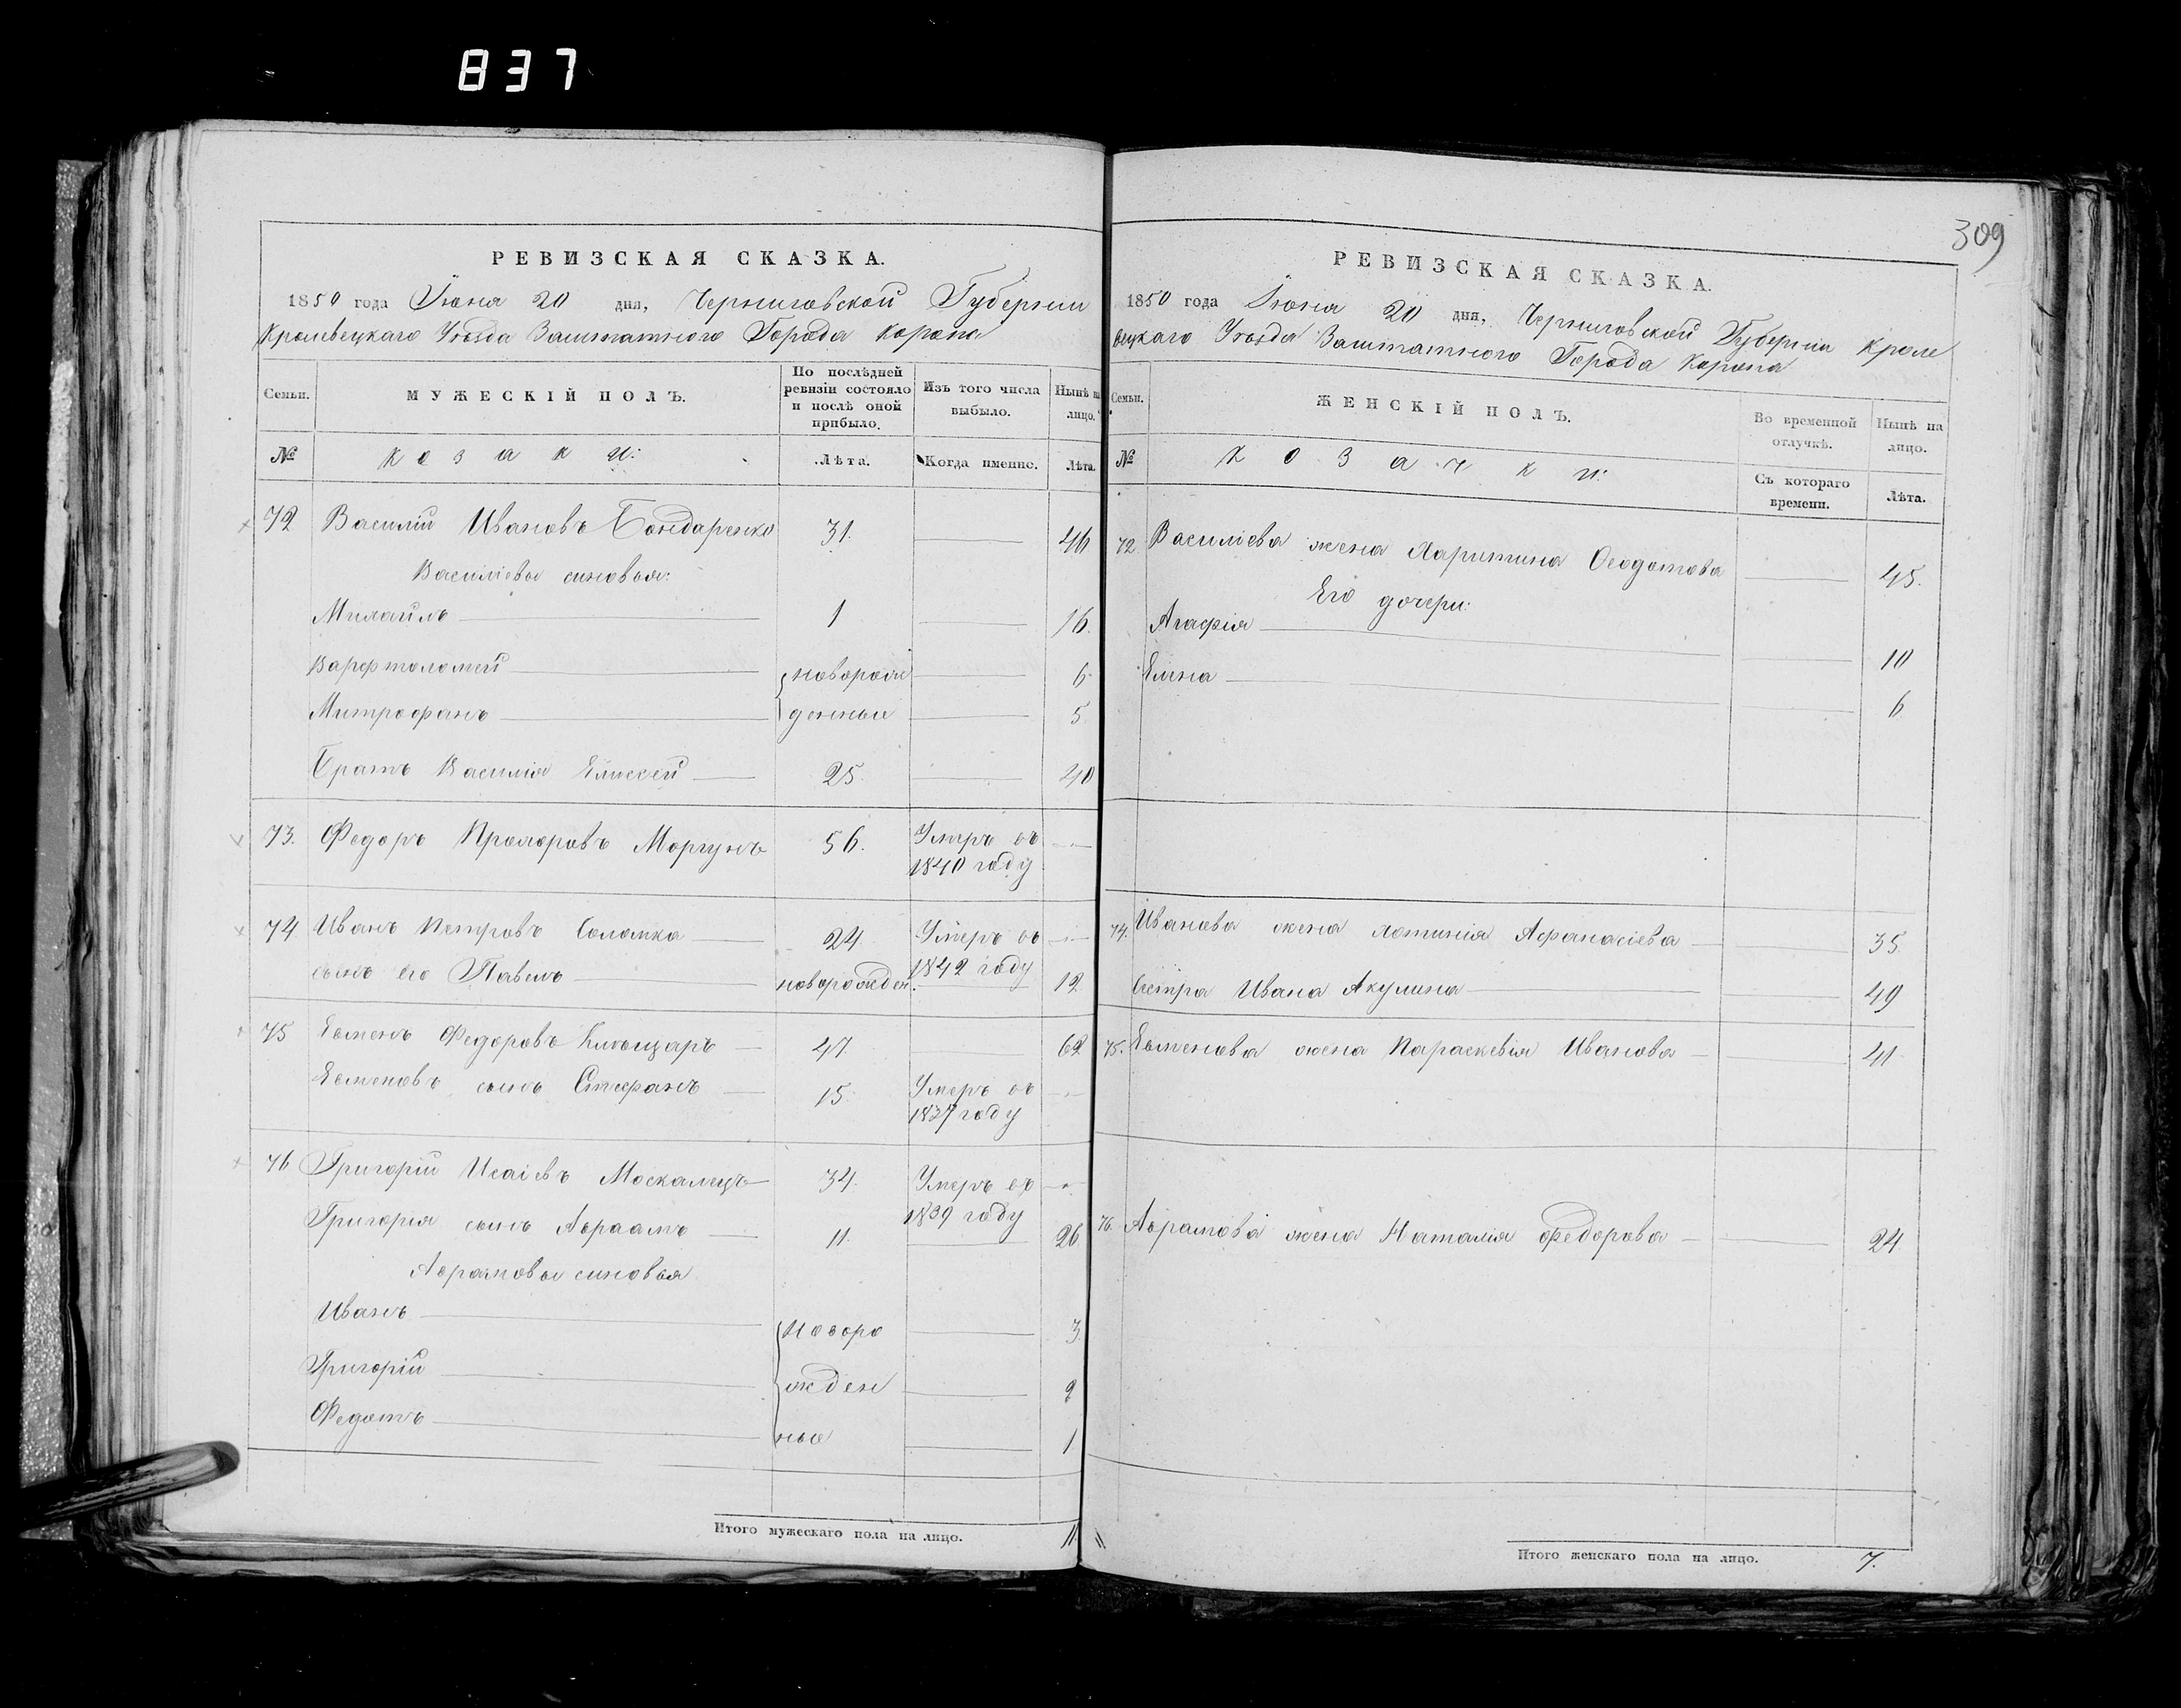 837
РЕВИЗСКАЯ СКАЗКА.
1850 года Іюня 20 дня, Черниговской Губерніи
Кролевецкаго Уѣзда Заштатного Города Коропа
Семьи. МУЖЕСКІЙ ПОЛЪ. По послѣдней ревизіи состояло и послѣ оной прибыло. Изъ того числа выбыло. Нынѣ на лицо.
№ Козаки: Лѣта. Когда именно. Лѣта.
72 Василій Ивановъ Бондаренко 31. 46
Василіевы сыновья:
Михаилъ 1 16.
Варфтоломей новорож 6
Митрофанъ денные 5
Братъ Василія Елисей 25. 40
73. Федоръ Прохоровъ Моргунъ 56. Умеръ въ
1840 году
74 Иванъ Петровъ Соломка 24 Умеръ въ
1842 году
сынъ его Павелъ новорожден. 12
75 Евменъ Федоровъ 47. 62
Евменовъ сынъ Стефанъ 15. Умеръ въ
1837 году
76 Григорій Исаіевъ Москалецъ 34. Умеръ въ
1839 году
Григорія сынъ Авраамъ 11. 26
Аврамовы сыновья
Иванъ новоро 3
Григорій жден 2
Федотъ ные 1
Итого мужескаго пола на лицо. 11
309
РЕВИЗСКАЯ СКАЗКА.
1850 года Іюня 20 дня, Черниговской Губерніи Кроле
вецкаго Уѣзда Заштатного Города Коропа
Семьи. ЖЕНСКІЙ ПОЛЪ. Во временной отлучкѣ. Нынѣ на лицо.
№ Козачки: Съ котораго времени. Лѣта.
72 Василіева жена Харитина Феодотова 45.
Его дочери:
Агафія 10
Елена 6
74. Иванова жена Хотинія Афанасіева 35.
Сестра Ивана Акулина 49
75. Евменова жена Параскевія Иванова 41
76. Аврамова жена Наталія Федорова 24
Итого женскаго пола на лицо. 7.